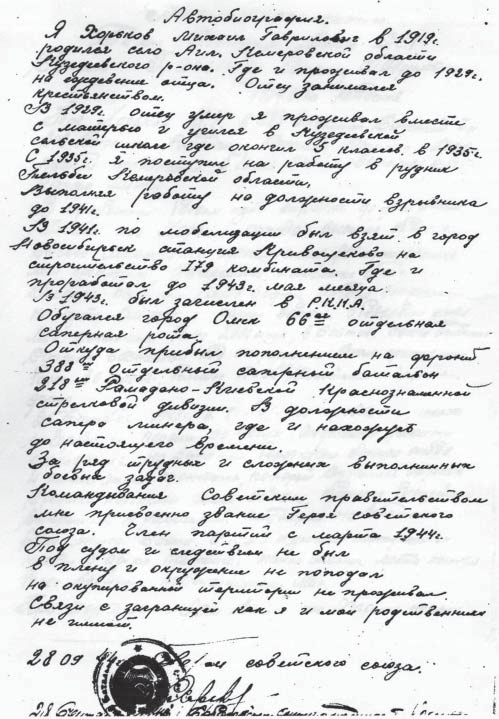 Автобиография.
Я Хорьков Михаил Гаврилович в 1919г.
родился село Аил. Кемеровской области
Кузедевского р-она. Где и проживал до 1929г.
на иждевение отца. Отец занимался
крестьянством.
В 1929г. отец умер я проживал вместе
с матерью и учился в Кузедевской
сельской школе где окончил 5 классов. в 1935г
С 1935г. я поступил на работу в рудник
Тельбес Кемеровской области,
Выполняя работу на должности взрывника
до 1941г.
В 1941г. по мобелизации был взят в город
Новосибирск станция Кривощеково на
строительство 179 комбината. Где и
проработал до 1943г. мая месяца.
В 1943г. был зачислен в Р.К.К.А.
Обучался город Омск 66ая отдельная
саперная рота.
Откуда прибыл пополнением на фронт
388ой отдельный саперный батальон
218ой Ромодано-Киевской Краснознаменной
стрелковой дивизии. В должности
сапера минера, где и нахожусь
до настоящего времени.
За ряд трудных и сложных выполнинных
боевых задач.
Командывания Советским правительством
мне присвоенно звание Героя советского
союза. Член партий с марта 1944г.
Под судом и следствием не был
в плену и окружение не попадал
на окупированной територии не проживал
Связи с заграницей как я и мои родственники
не имеют.
28 09 44г. советского союза.
28